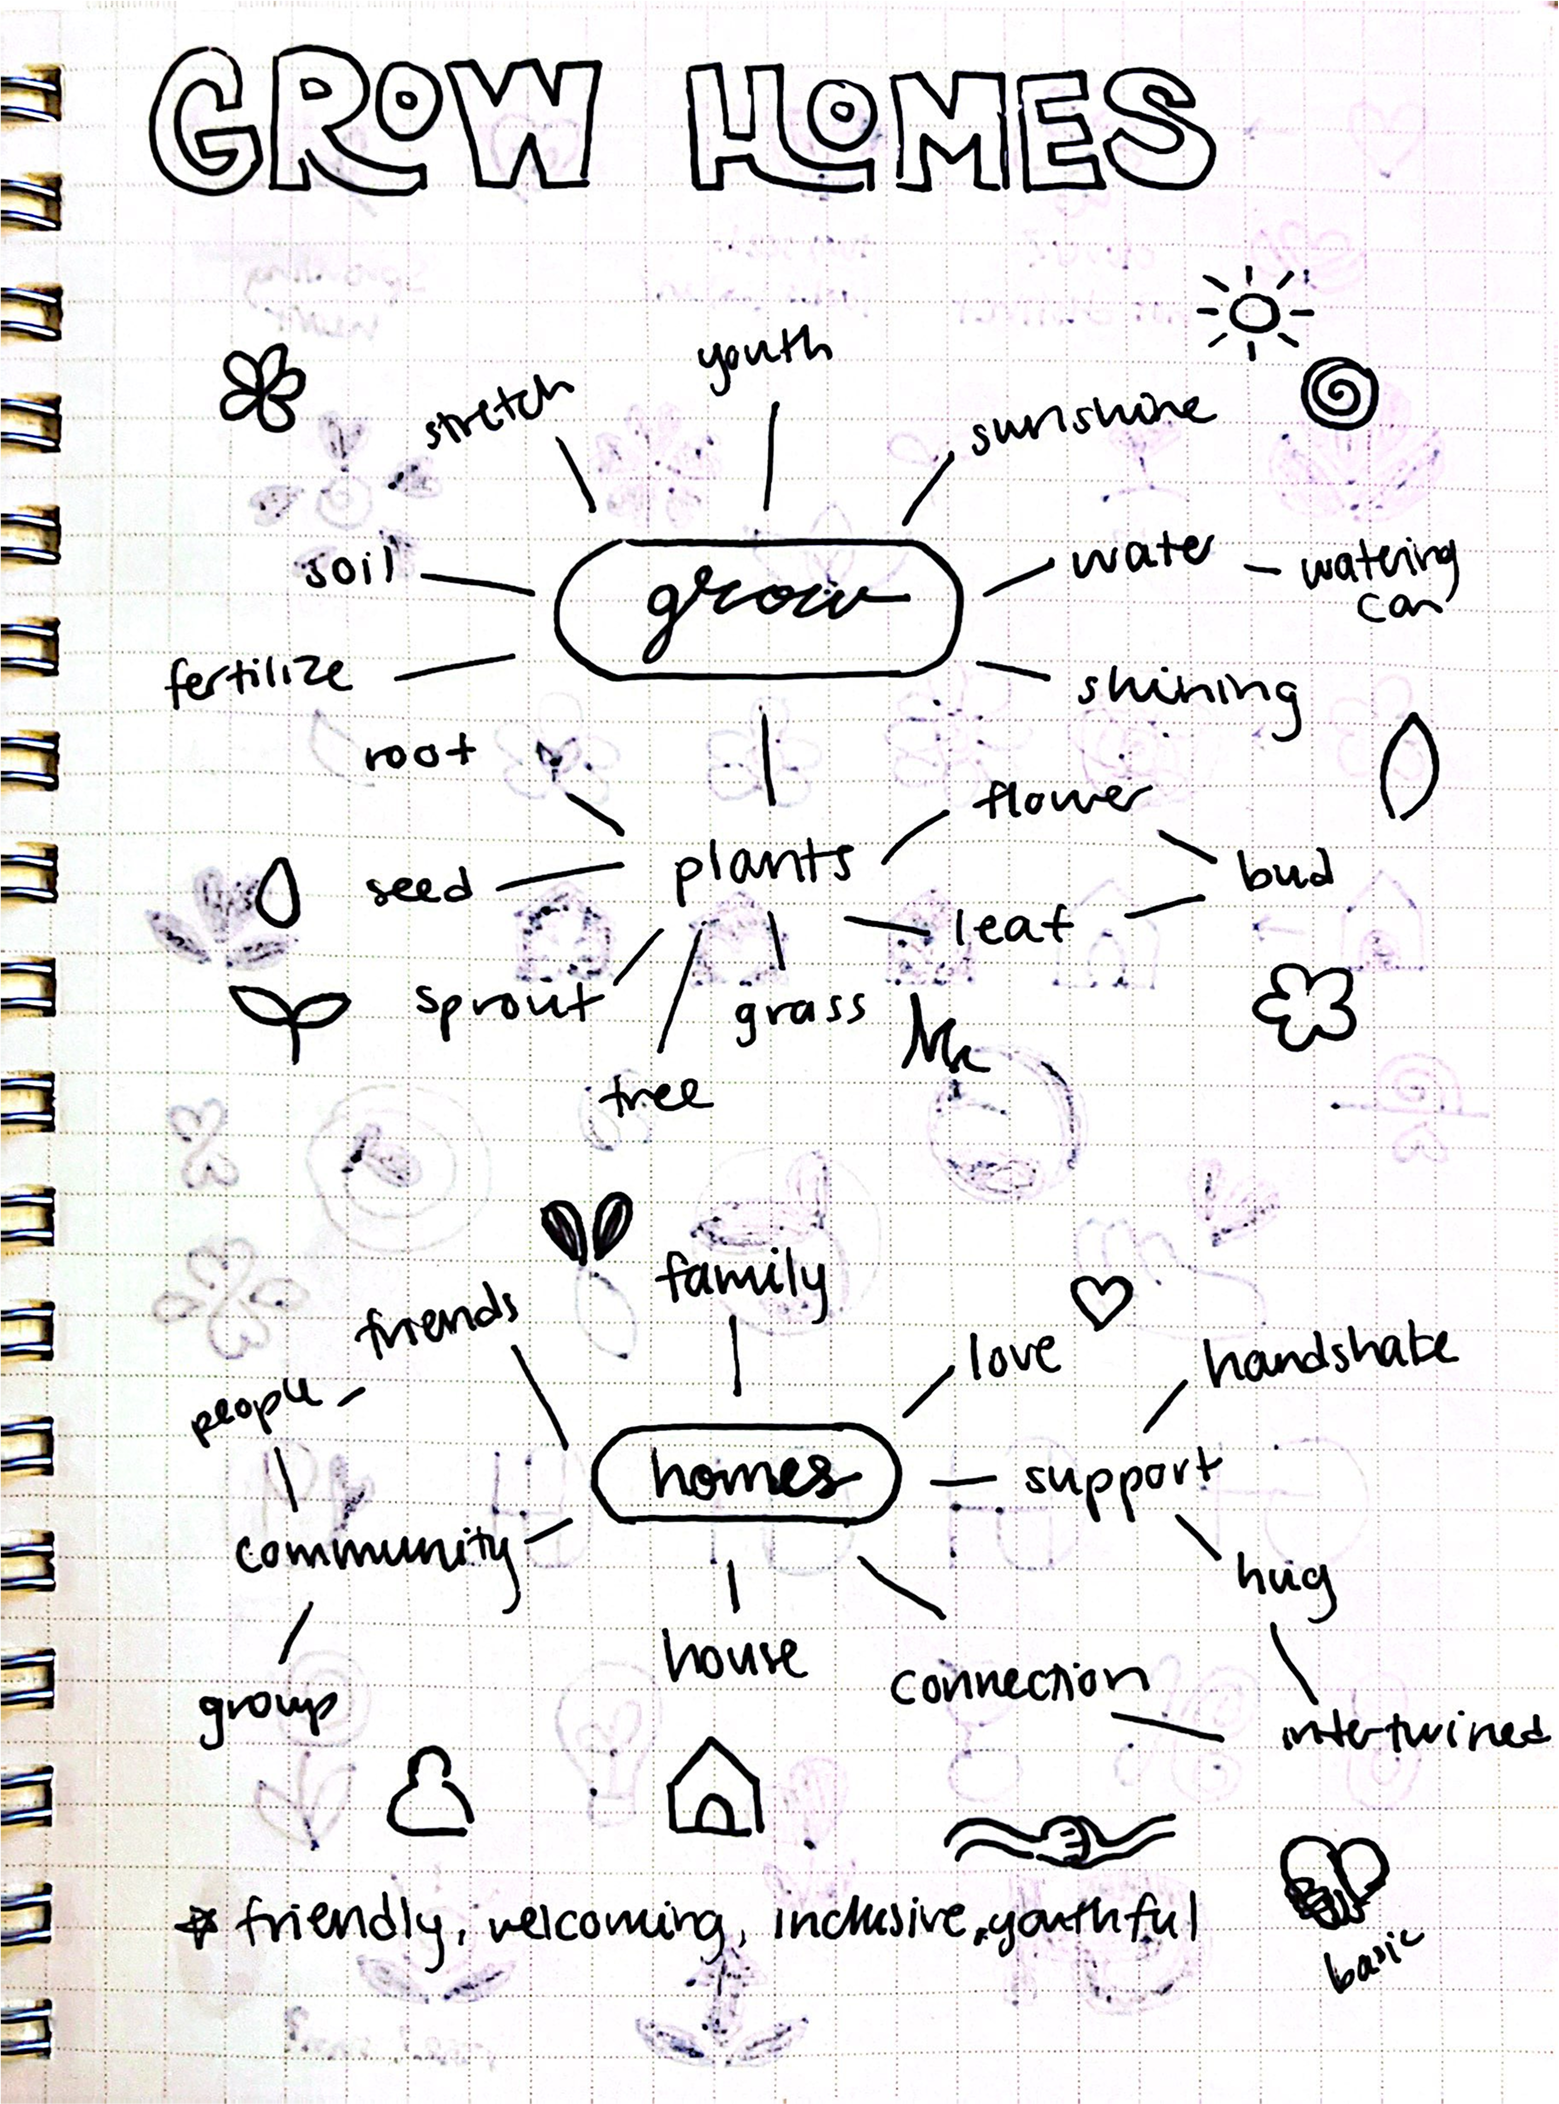 GROW HOMES
youth
stretch
sunshine
soil
grow
water
watering
can
fertilize
shining
root
flower
plants
seed
bud
leaf
sprout
grass
tree
family
friends
love
handshake
people
homes
support
community
hug
house
connection
group
intertwined
friendly, welcoming, inclusive, youthful
basic